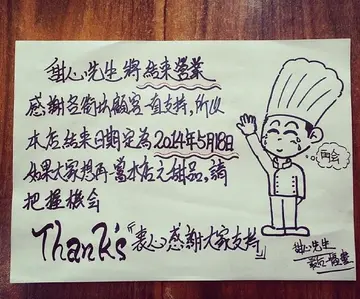 甜心先生將結束營業
感謝各街坊顧客一直支持，所以
本店結束日期定為2014年5月18日
如果大家想再嘗本店之甜品，請
把握機會
Thank's「衷心感謝大家支持」
再會
甜心先生